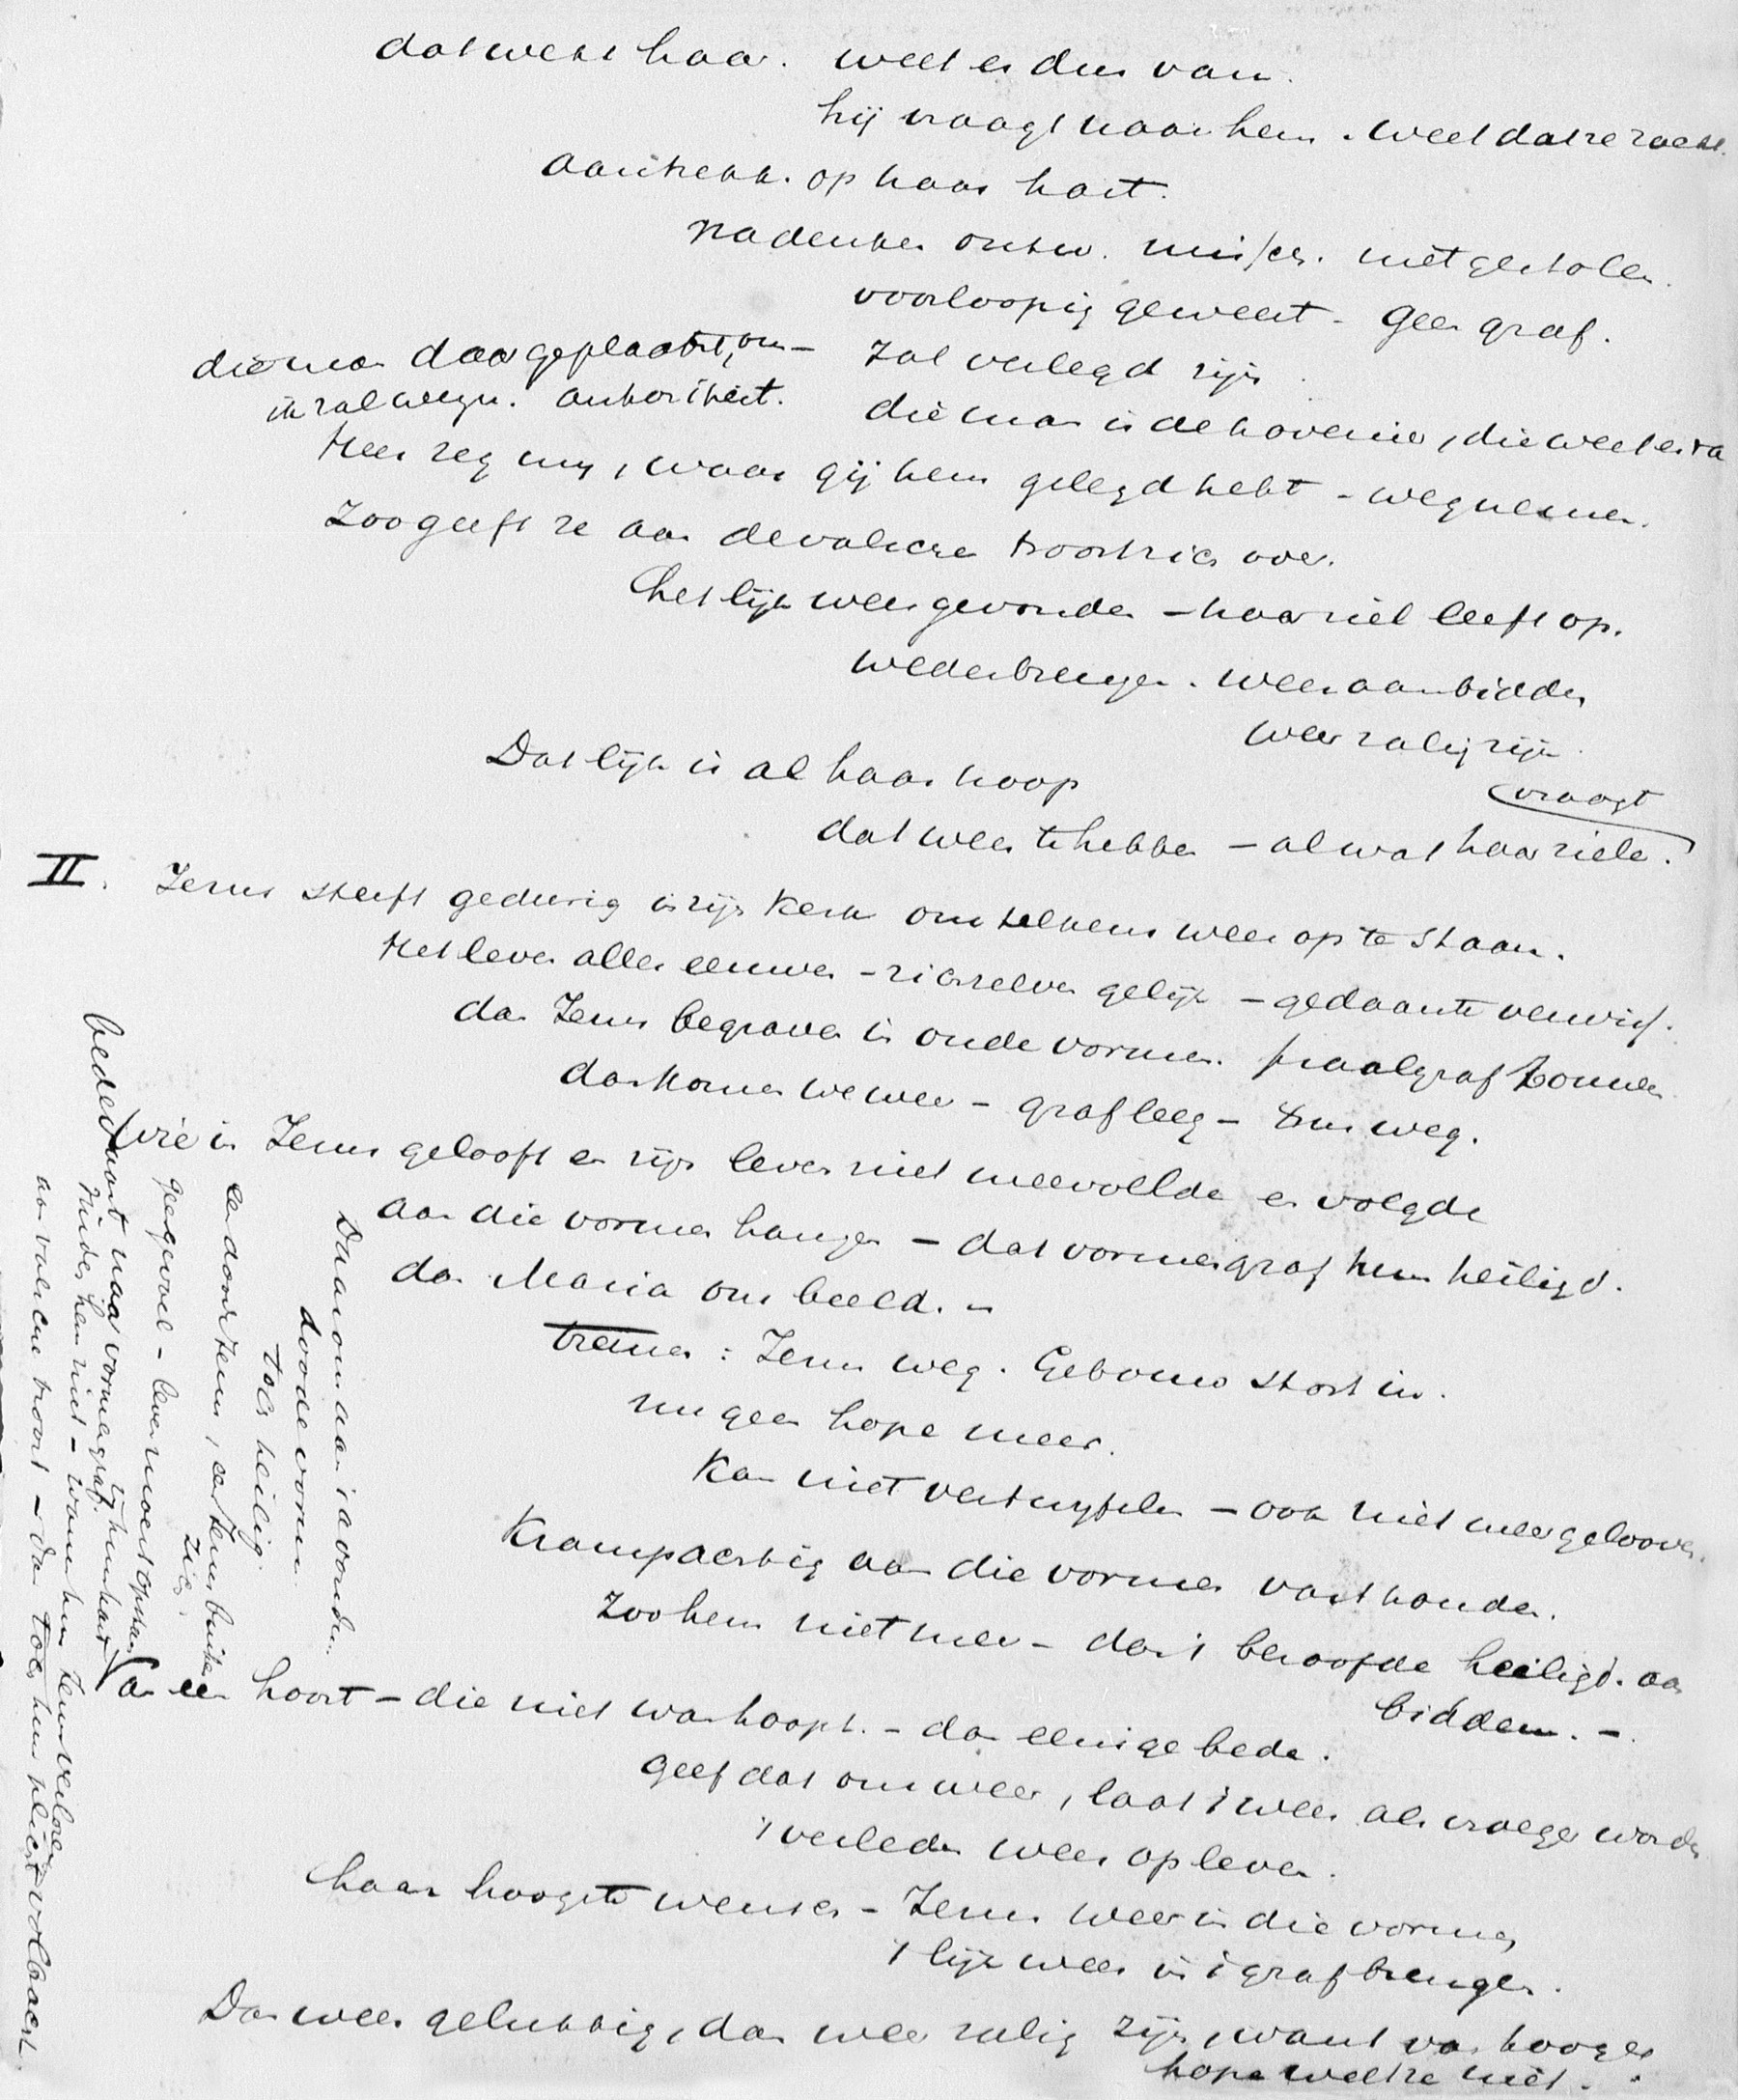 dat wekt haar. weet er dus van.
hij vraagt naar hem. weet dat ze zoekt.
aantrekk. op haar hart.
nadenken ontw. missch. niet gestolen.
voorloopig geweest - geen graf.
die man daar geplaatst, om - zal verlegd zijn.
ik zal wegn. autoriteit. die man is de hovenier, die weet er va
Heer zeg my, waar gij hem gelegd hebt - wegnemen.
Zoo geeft ze aan de valsche troost zich over.
het lijk weer gevonden - haar ziel leeft op.
wederbrengen. weer aanbidden
weer zalig zijn.
Dat lijk is al haar hoop
vraagt
dat weer te hebben - al wat haar ziele.
II. Jezus sterft gedurig in zijn Kerk om telkens weer op te staan.
Het leven aller eeuwen - zichzelven gelijk - gedaante verwis.
dan Jezus begraven in oude vormen. praalgraf bouwen
dan komen we weer - graf leeg - Jezus weg.
Wie in Jezus gelooft en zijn leven niet meevoelde en volgde
aan die vormen hangen - dat vormengraf hun heiligd.
dan Maria ons beeld. -
treuren: Jezus weg. Gebouw stort in.
nu geen hope meer.
Kan niet vertwyfelen - ook niet meer gelooven.
Krampachtig aan die vormen vasthouden.
Zoo hem niet meer - dan 't beroofde heiligd. aan
bidden. -
Van een hoort - die niet wanhoopt. - dan eenige bede.
geef dat ons weer, laat 't weer als vroeger worden
't verleden weer opleven.
haar hoogste wensch - Jezus weer in die vormen
't lijk weer in 't graf brengen.
Dan weer gelukkig, dan weer zalig zijn, want van hooger
hope weet ze niet.
Daarom aan 's avonds.
doode vormen.
toch heilig.
en door Jezus, en Jezus buiten
zich.
geen gevoel - leven moest opstaan
bedevaart naar vormengraf. bij hun hart
Vinden hem niet - wanen hun Jezus verloren
aan valsche troost - dan toch hun plicht volbracht.